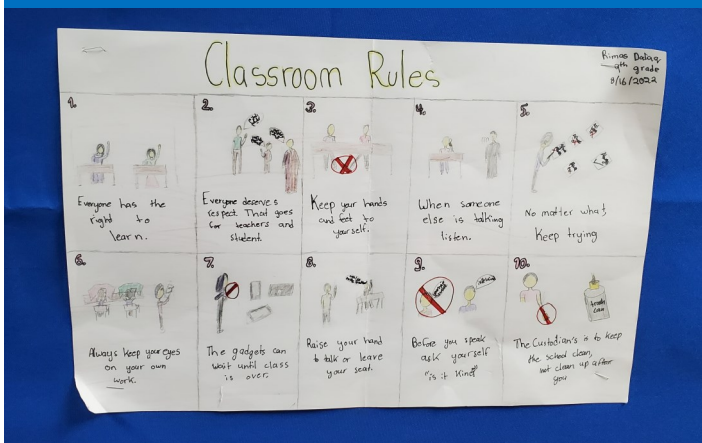 Classroom Rules
Rimas Dalaq
9th grade
8/16/2022
1.
Everyone has the
right to
learn.
2.
Everyone deserves
respect. That goes
for teachers and
student.
3.
Keep your hands
and feet to
yourself.
4.
When someone
else is talking
listen.
5.
No matter what,
Keep trying
6.
Always keep your eyes
on your own
work.
7.
The gadgets can
wait until class
is over.
8.
Raise your hand
to talk or leave
your seat.
9.
Before you speak
ask yourself
"is it kind"
10.
The Custodian's is to keep
the school clean,
not clean up after
you